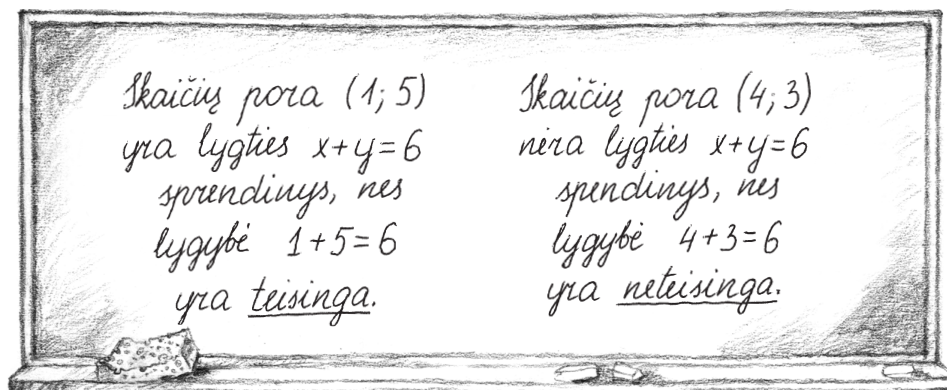 Skaičių pora (1; 5)
yra lygties x+y=6
sprendinys, nes
lygybė 1+5=6
yra teisinga.
Skaičių pora (4; 3)
nėra lygties x+y=6
spendinys, nes
lygybė 4+3=6
yra neteisinga.